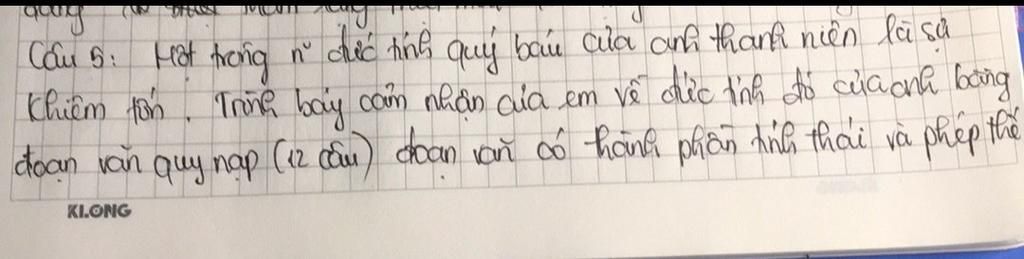 Câu 5: Một trong n~ đức tính quý báu của anh thanh niên là sự
khiêm tốn. Trình bày cảm nhận của em về đức tính đó của anh bằng
đoạn văn quy nạp (12 câu) đoạn văn có thành phần tình thái và phép thế
KLONG